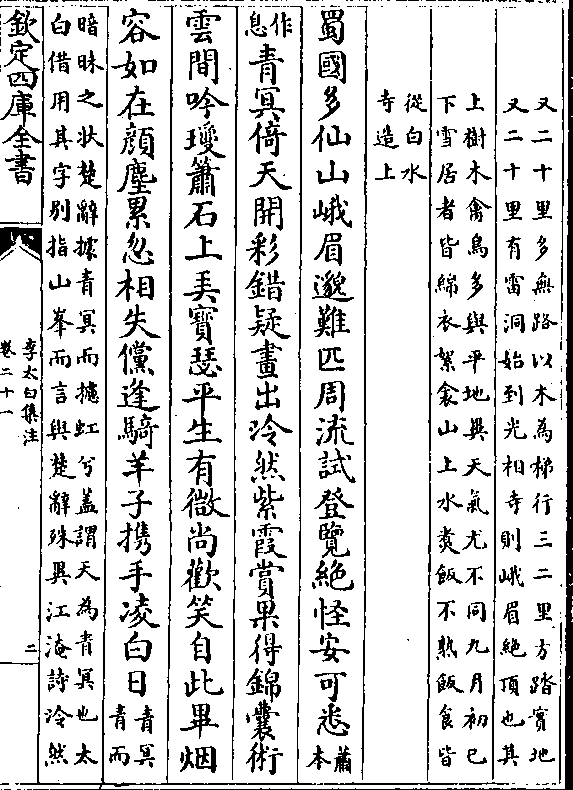 又二十里多無路以木為梯行三二里方踏實地
又二十里有雷洞始到光相寺則峨眉絶頂也其
上樹木禽鳥多與平地異天氣尤不同九月初已
下雪居者皆綿衣絮衾山上水煮飯不熟飯食皆
從白水
寺造上
蜀國多仙山峨眉邈難匹周流試登覽絶怪安可悉蕭本
作息青冥倚天開彩錯疑畫出泠然紫霞賞果得錦囊術
雲間吟瓊簫石上弄寶瑟平生有微尚歡笑自此畢烟
容如在顔塵累忽相失儻逢騎羊子携手凌白日青冥青而
暗昧之状楚辭據青冥而攄虹兮蓋謂天為青冥也太
白借用其字别指山峯而言與楚辭殊異江淹詩泠然
欽定四庫全書
李太白集注
卷二十一
二